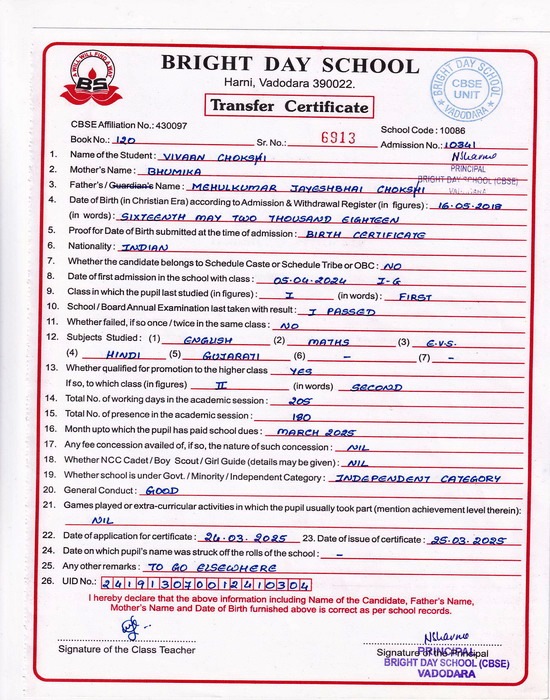 A WILL WILL FIND A WAY
BS
BRIGHT DAY SCHOOL
Harni, Vadodara 390022.
Transfer Certificate
BRIGHT DAY SCHOOL
CBSE
UNIT
VADODARA
CBSE Affiliation No.: 430097
School Code : 10086
Book No.: 120 Sr. No.: 6913 Admission No.: 10341
1. Name of the Student : VIVAAN CHOKSHI
PRINCIPAL
2. Mother's Name : BHUMIKA
BRIGHT DAY SCHOOL (CBSE)
3. Father's / Guardian's Name : MEHULKUMAR JAYESHBHAI CHOKSHI
4. Date of Birth (in Christian Era) according to Admission & Withdrawal Register (in figures) : 16.05.2018
(in words) : SIXTEENTH MAY TWO THOUSAND EIGHTEEN
5. Proof for Date of Birth submitted at the time of admission : BIRTH CERTIFICATE
6. Nationality : INDIAN
7. Whether the candidate belongs to Schedule Caste or Schedule Tribe or OBC : NO
8. Date of first admission in the school with class : 05.04.2024 I-G
9. Class in which the pupil last studied (in figures) : I (in words) : FIRST
10. School / Board Annual Examination last taken with result : I PASSED
11. Whether failed, if so once / twice in the same class : NO
12. Subjects Studied : (1) ENGLISH (2) MATHS (3) E.V.S.
(4) HINDI (5) GUJARATI (6) - (7) -
13. Whether qualified for promotion to the higher class YES
If so, to which class (in figures) II (in words) SECOND
14. Total No. of working days in the academic session : 205
15. Total No. of presence in the academic session : 180
16. Month upto which the pupil has paid school dues : MARCH 2025
17. Any fee concession availed of, if so, the nature of such concession : NIL
18. Whether NCC Cadet / Boy Scout / Girl Guide (details may be given) : NIL
19. Whether school is under Govt. / Minority / Independent Category : INDEPENDENT CATEGORY
20. General Conduct : GOOD
21. Games played or extra-curricular activities in which the pupil usually took part (mention achievement level therein) :
NIL
22. Date of application for certificate : 24.03.2025 23. Date of issue of certificate : 25.03.2025
24. Date on which pupil's name was struck off the rolls of the school : -
25. Any other remarks : TO GO ELSEWHERE
26. UID No.: 241913070012410304
I hereby declare that the above information including Name of the Candidate, Father's Name,
Mother's Name and Date of Birth furnished above is correct as per school records.
Signature of the Class Teacher
Signature of the Principal
PRINCIPAL
BRIGHT DAY SCHOOL (CBSE)
VADODARA